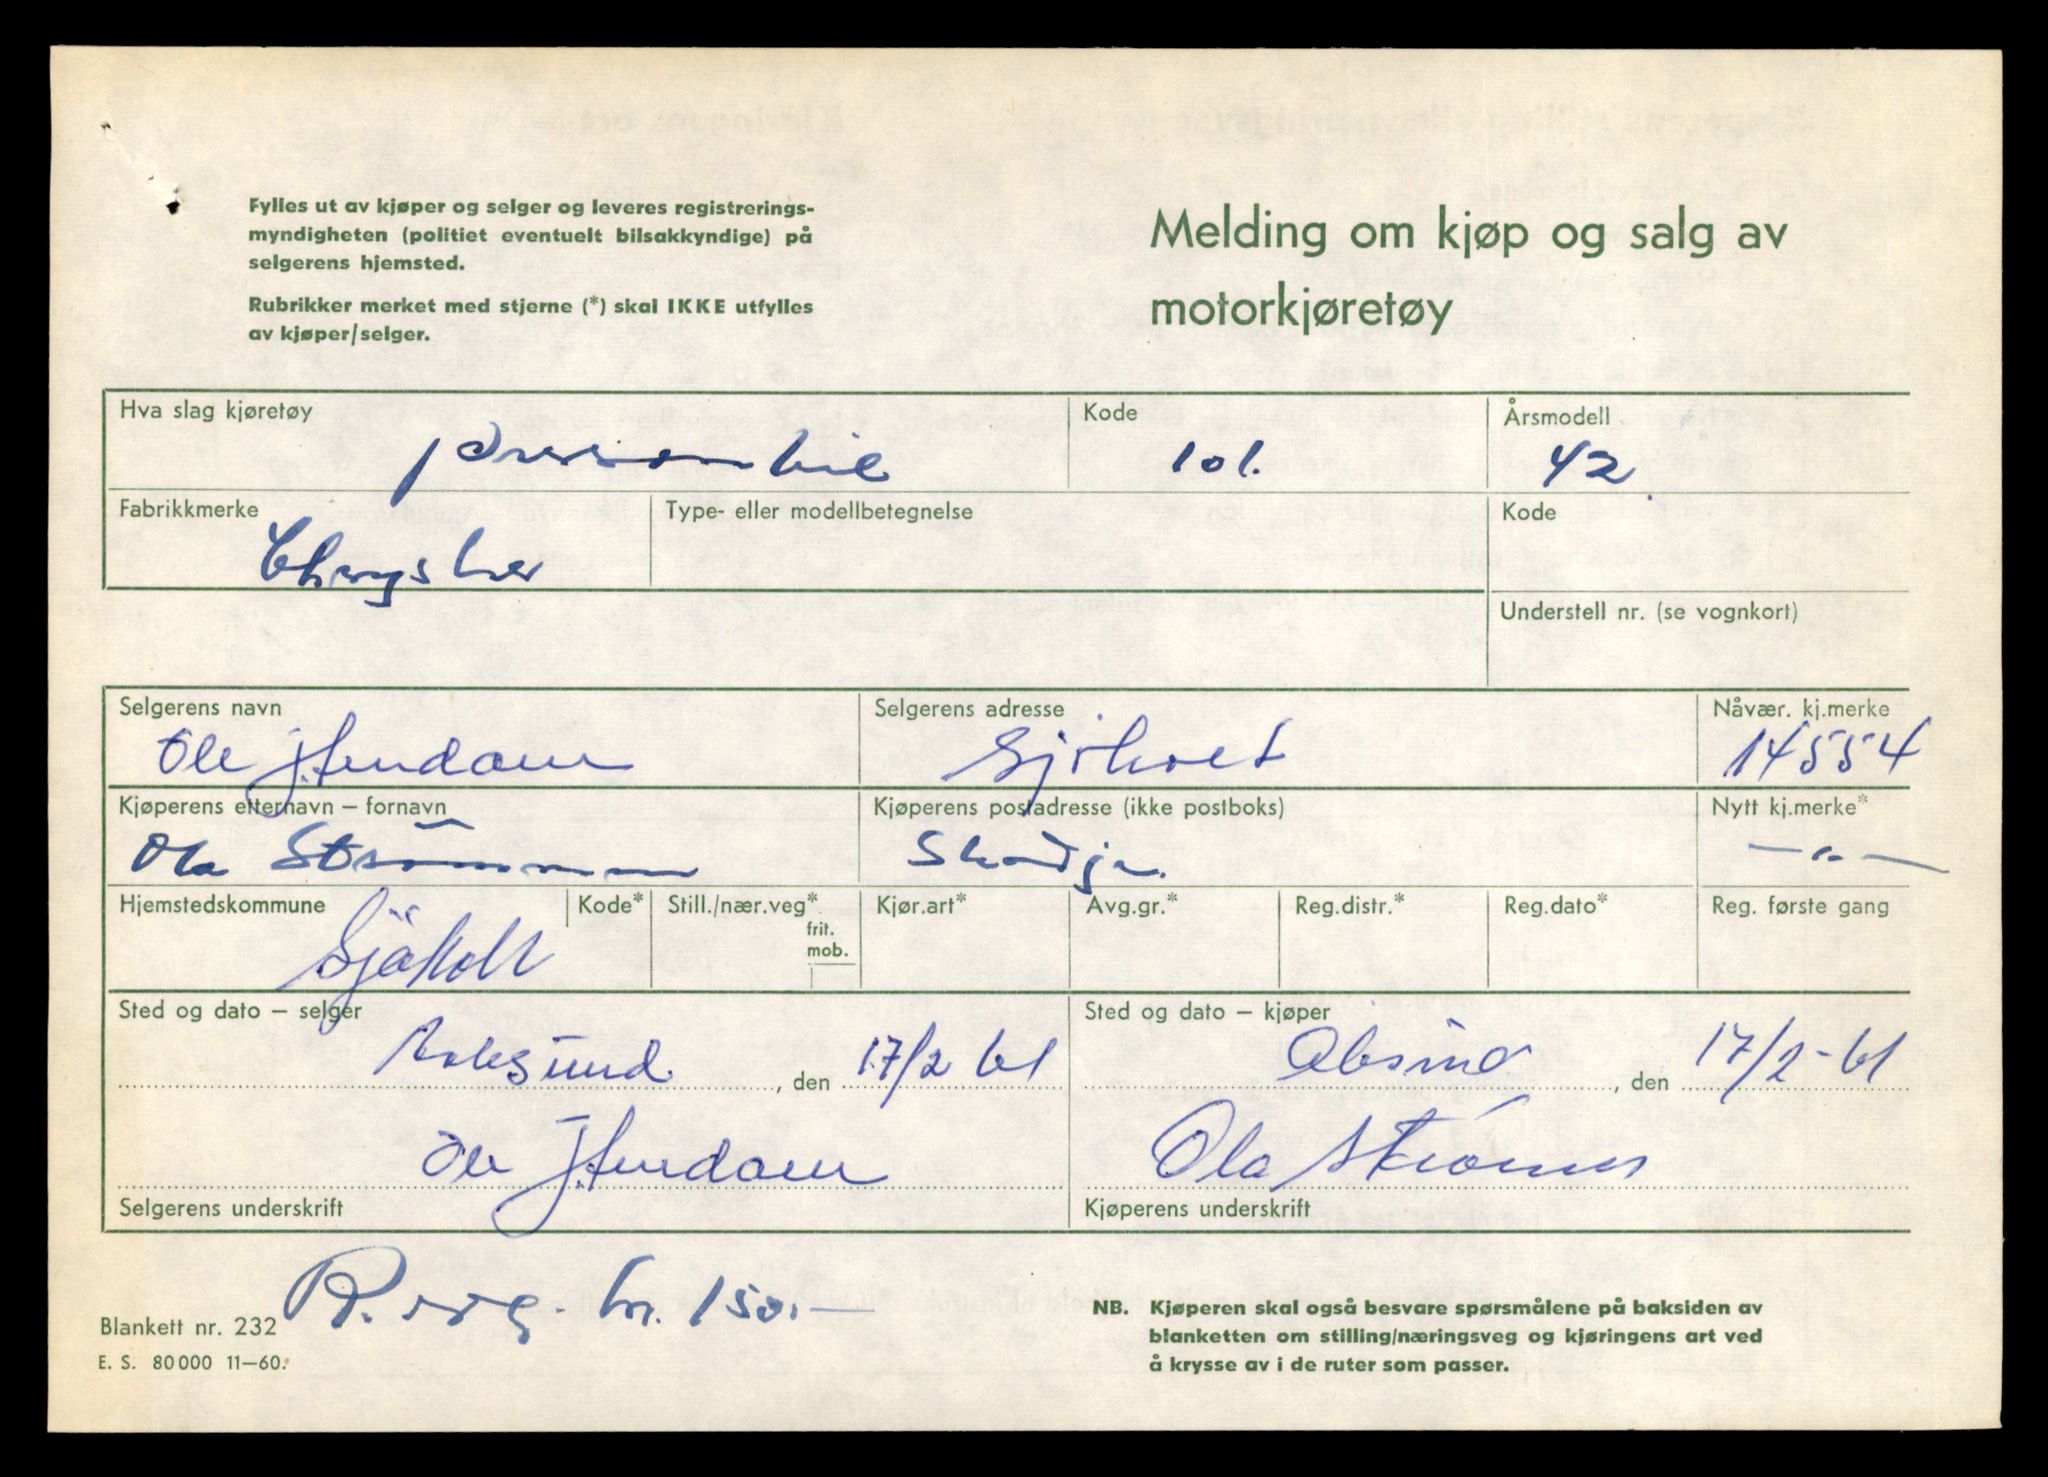 Fylles ut av kjøper og selger og leveres registrerings-
myndigheten (politiet eventuelt bilsakkyndige) på
selgerens hjemsted.
Rubrikker merket med stjerne (*) skal IKKE utfylles
av kjøper/selger.
Melding om kjøp og salg av
motorkjøretøy
Hva slag kjøretøy Kode Årsmodell
personbil 101. 42
Fabrikkmerke Type- eller modellbetegnelse Kode
Chrysler
Understell nr. (se vognkort)
Selgerens navn Selgerens adresse Nåvær. kj.merke
Ole J. Sjöholt 14554
Kjøperens etternavn – fornavn Kjøperens postadresse (ikke postboks) Nytt kj.merke*
Ola Strömmen Skodje. –"–
Hjemstedskommune Kode* Still./nær.veg* Kjør.art* Avg.gr.* Reg.distr.* Reg.dato* Reg. første gang
frit.
mob.
Sjöholt
Sted og dato – selger Sted og dato – kjøper
, den 17/2 61 , den 17/2-61
Ole J. Ola
Selgerens underskrift Kjøperens underskrift
kr. 150.–
Blankett nr. 232
E. S. 80000 11–60.
NB. Kjøperen skal også besvare spørsmålene på baksiden av
blanketten om stilling/næringsveg og kjøringens art ved
å krysse av i de ruter som passer.